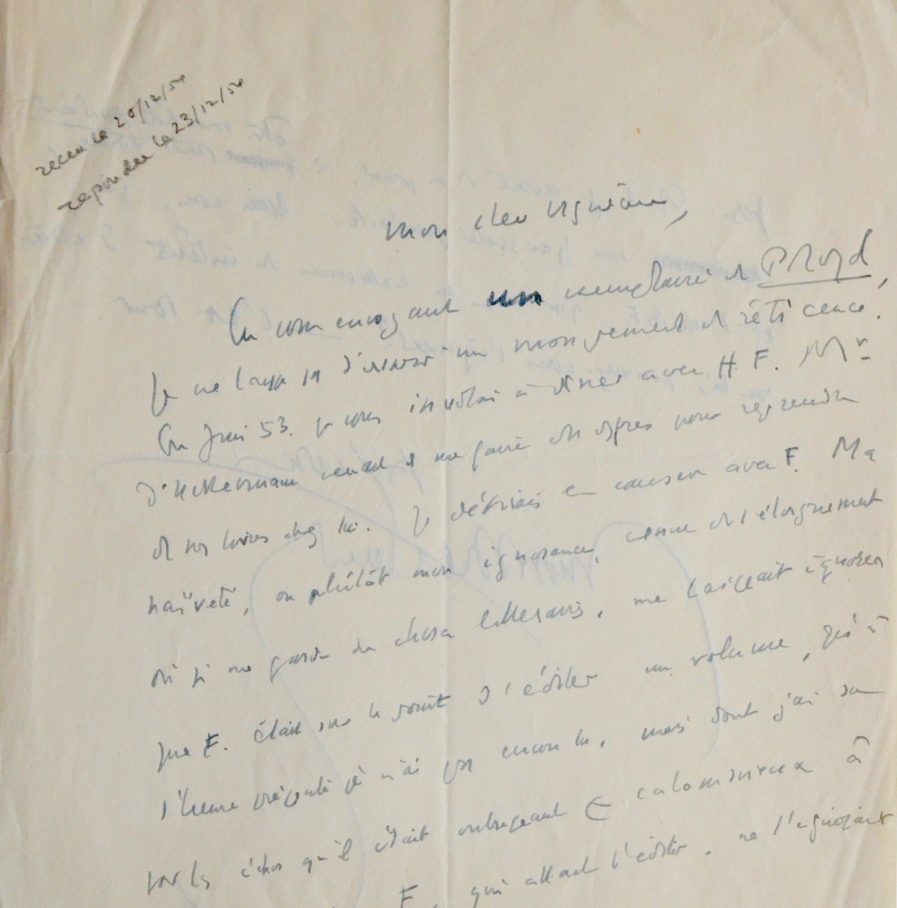 recu le 20/12/54
repondu le 23/12/54
mon cher Vigneau,
En vous envoyant un exemplaire de PRoyd,
je ne laisse pas d'avoir un mouvement de réticence.
En Juin 53. je vous invitai à dîner avec H F. Mr
d'Uckermann venait de me faire des offres pour reprendre
de mes livres chez lui. Je désirais en causer avec F. Ma
naïveté, ou plutôt mon ignorance, venue de l'éloignement
où je me garde des choses littéraires, me laissait ignorer
que F. était sur le point d'éditer un volume, qu'à
l'heure présente je n'ai pas encore lu, mais dont j'ai su
par les échos qu'il était outrageant et calomnieux à
F, qui allait l'éditer, ne l'ignorait